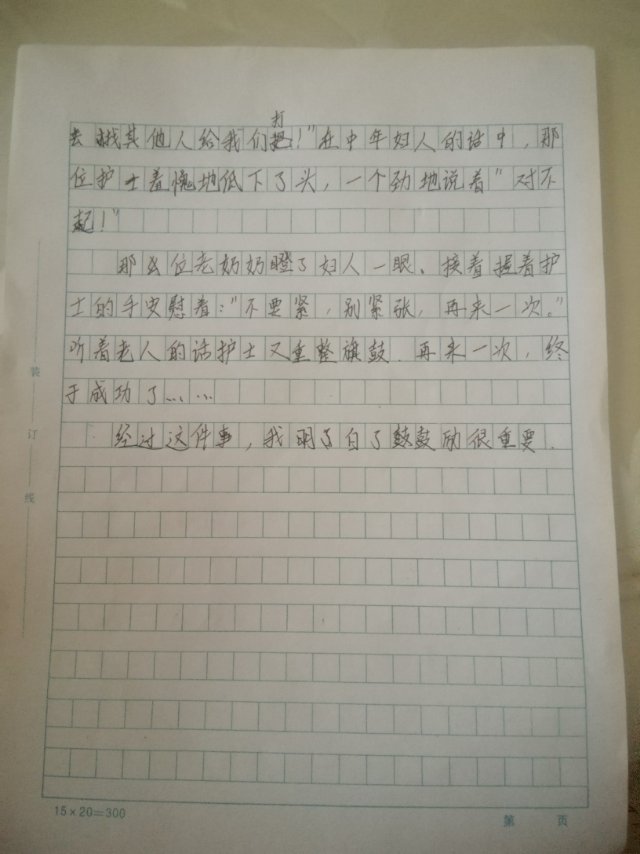 打
去找其他人给我们把!"在中年妇人的话中,那
位护士羞愧地低下了头,一个劲地说着"对不
起!"
那么位老奶奶瞪了妇人一眼、接着握着护
士的手安慰着:"不要紧,别紧张,再来一次。"
听着老人的话护士又重整旗鼓.再来一次,终
于成功了……
经过这件事,我明了白了鼓鼓励很重要.
装
订
线
15×20=300
第 页